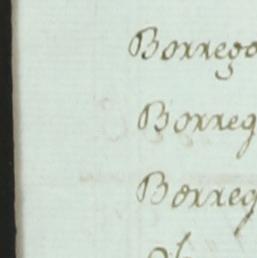 Borrego
Borreg
Borreg